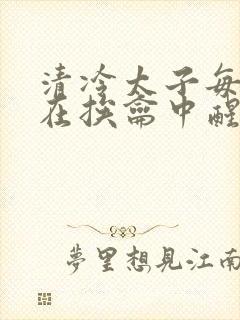 清冷太子每
在挨龠中醒
夢里想見江南